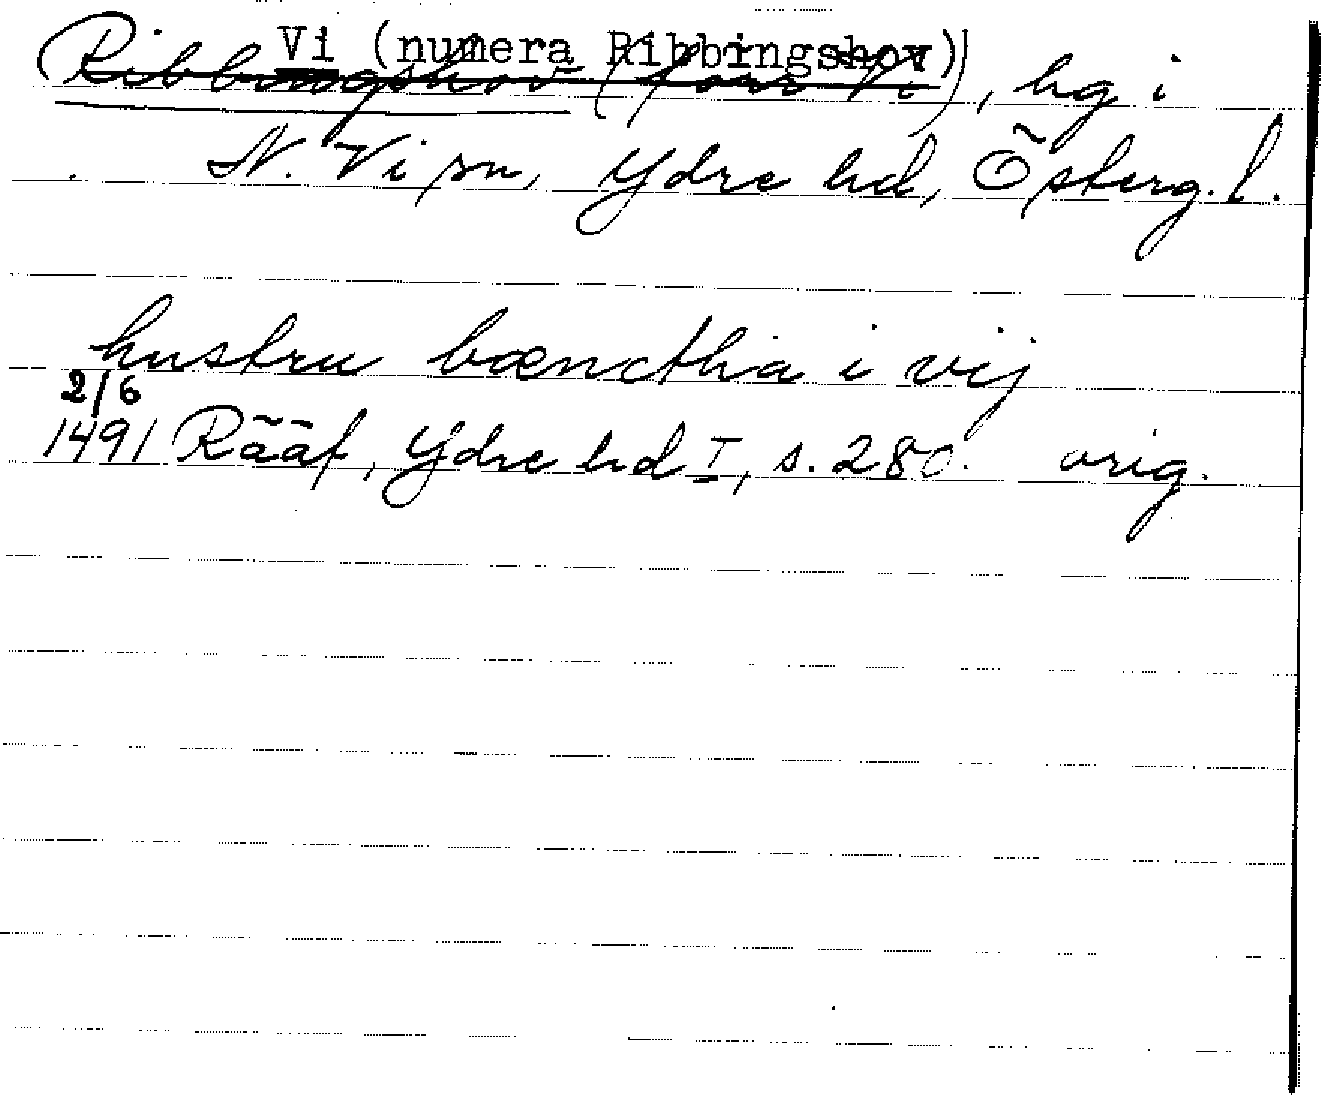 Vi (numera Ribbingshov)
Ribbingshov (förr Vi), hg i
N. Vi sn, Ydre hd, Österg. l.
hustru bænctha i vij
2/6
1491 Rääf, Ydre hd I, s. 280. orig.